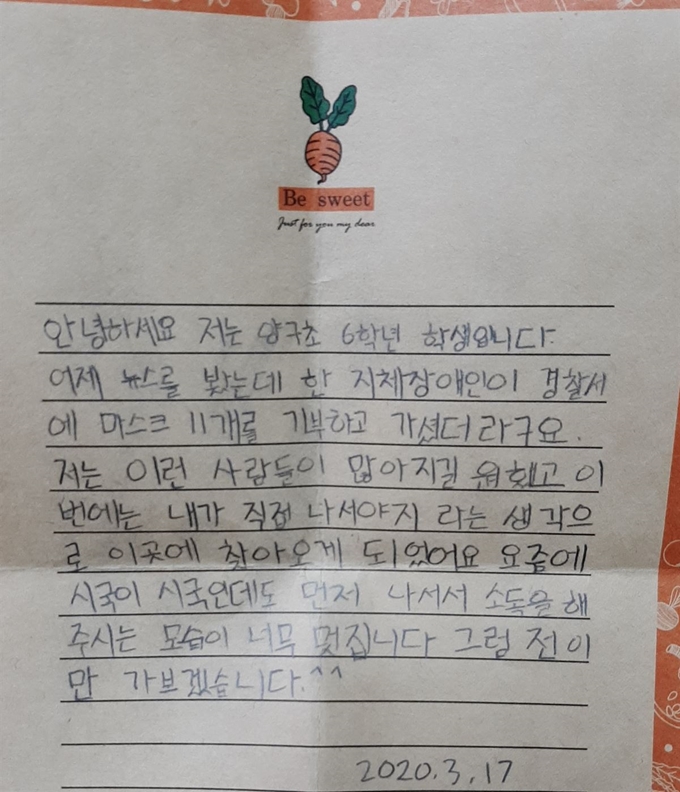 Be sweet
Just for you my dear
안녕하세요 저는 양구초 6학년 학생입니다.
어제 뉴스를 봤는데 한 지체장애인이 경찰서
에 마스크 11개를 기부하고 가셨더라구요.
저는 이런 사람들이 많아지길 원했고 이
번에는 내가 직접 나서야지 라는 생각으
로 이곳에 찾아오게 되었어요 요즘에
시국이 시국인데도 먼저 나서서 소독을 해
주시는 모습이 너무 멋집니다 그럼 전 이
만 가브겠습니다.^^
2020.3.17